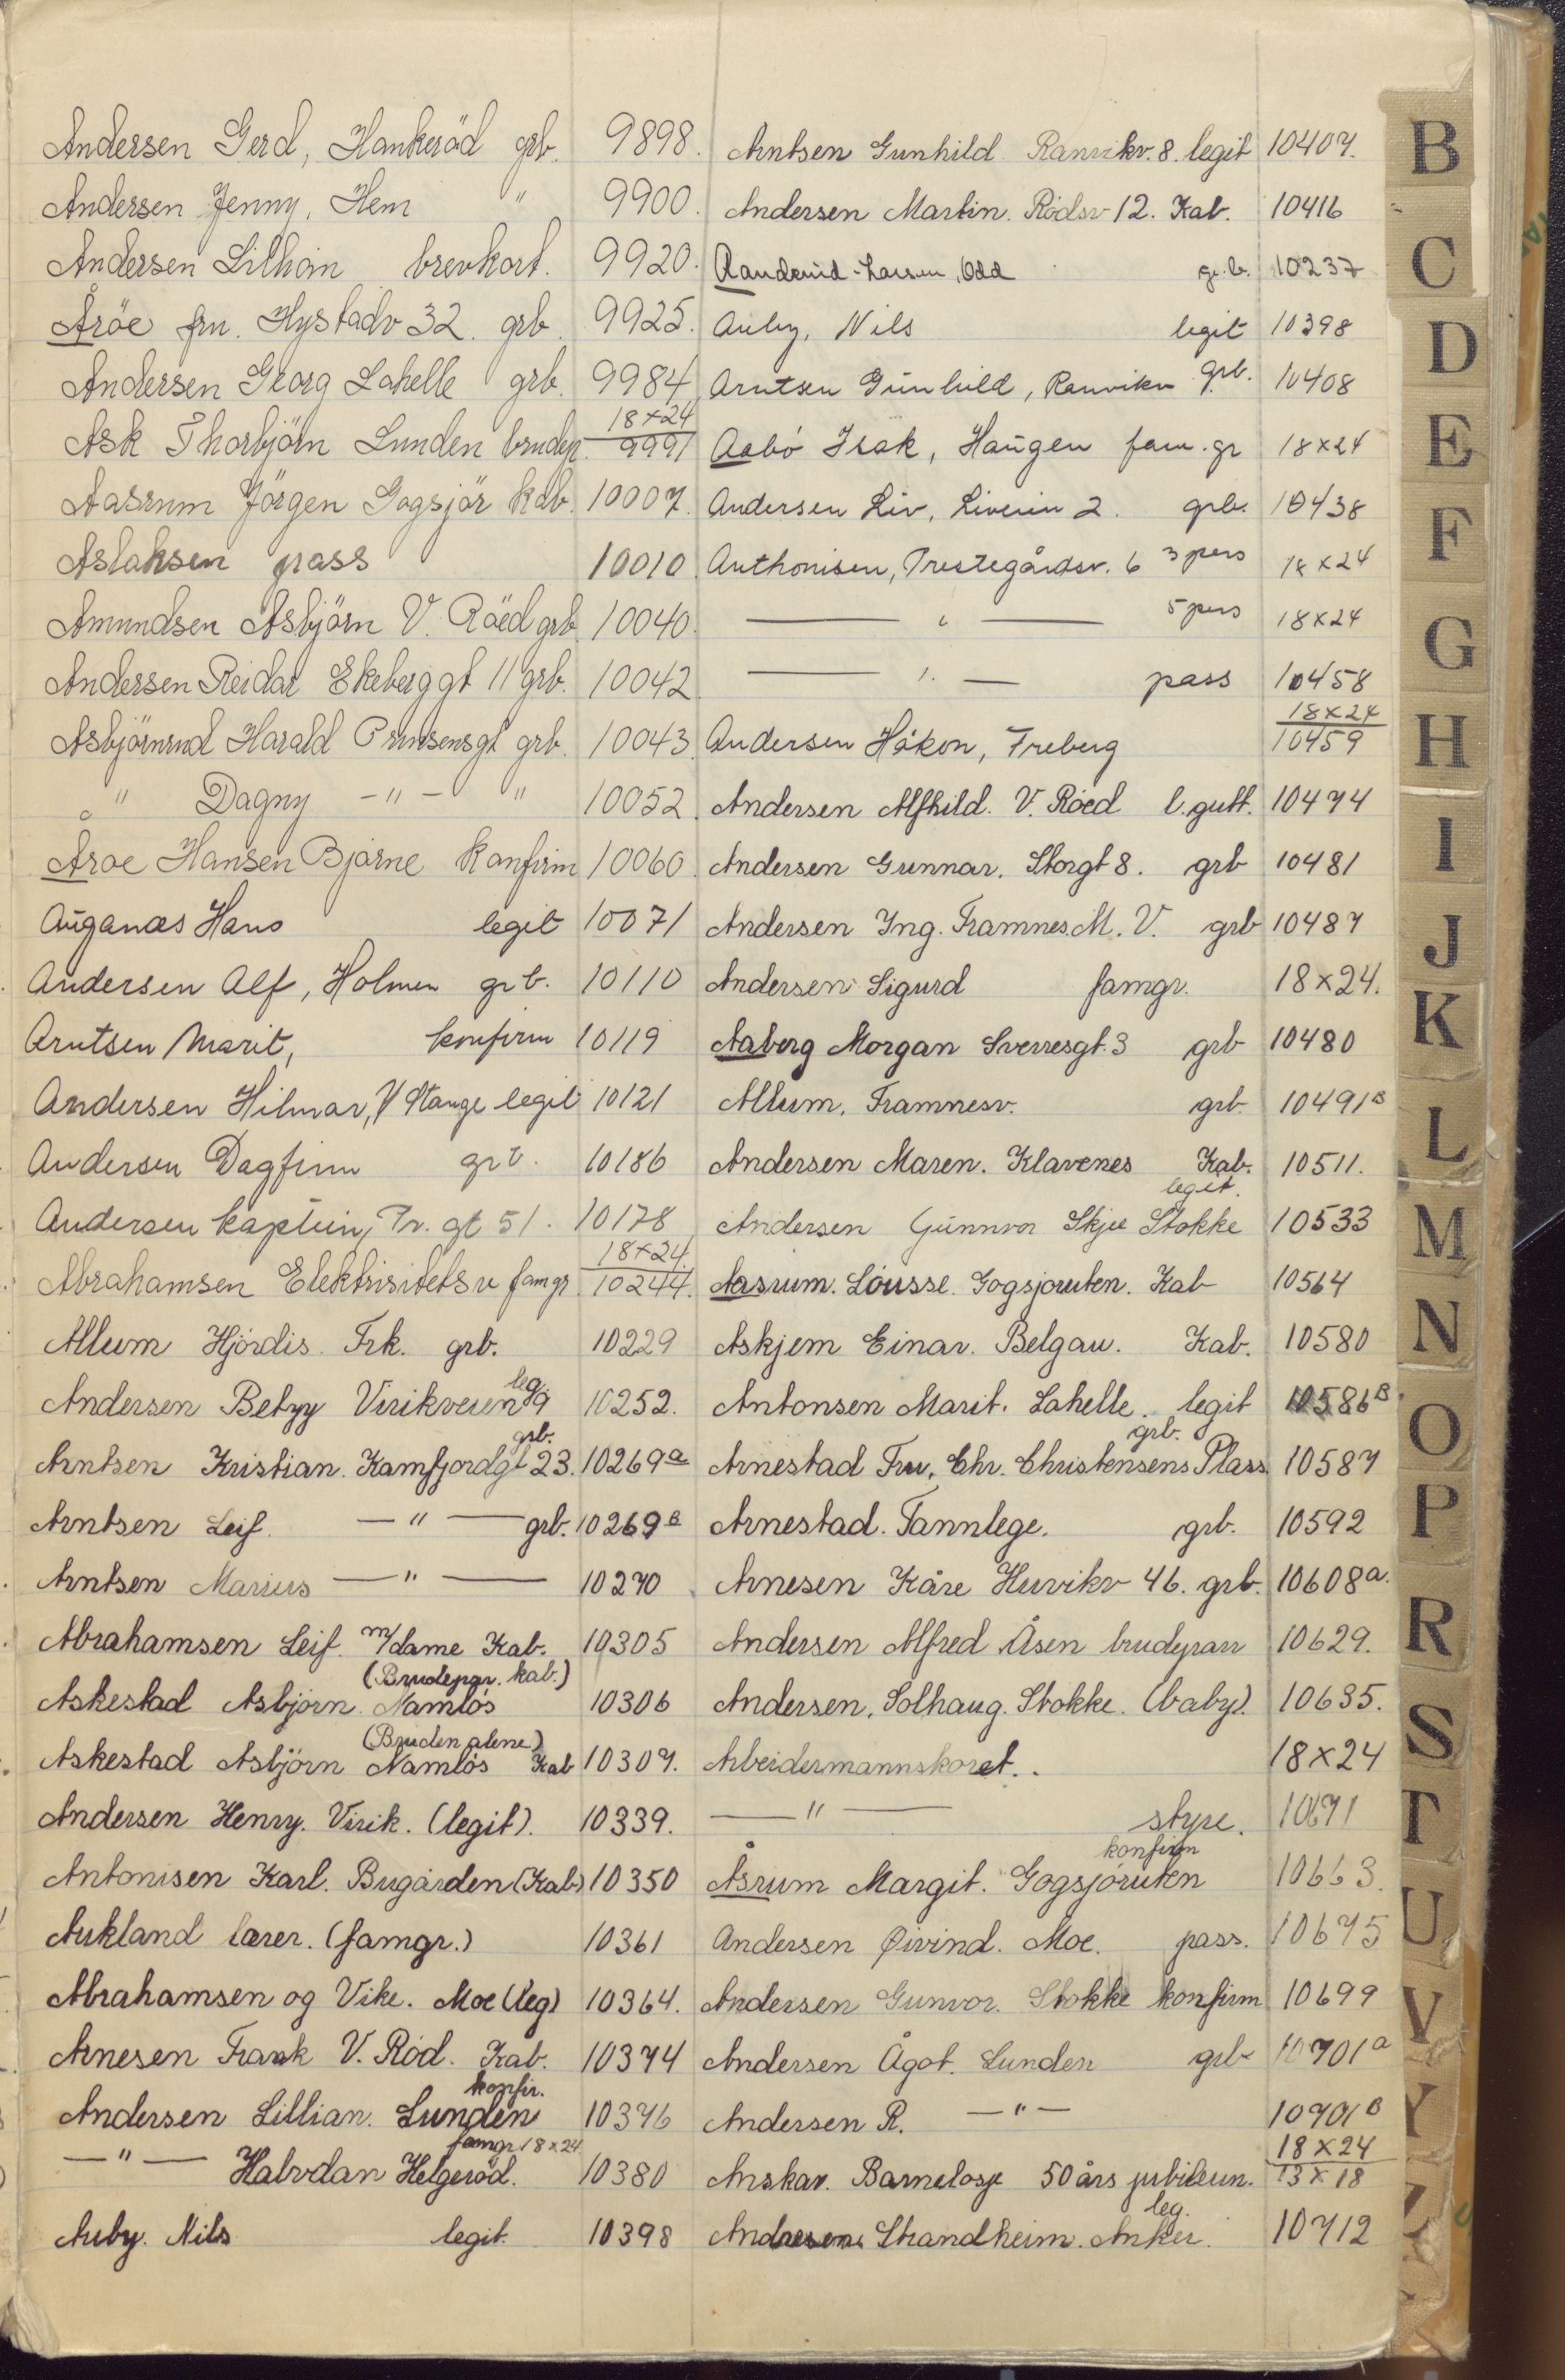 Andersen Gerd, Hankeröd grb. 9898.
Andersen Jenny, Hem " 9900.
Andersen brevkort. 9920.
Åröe fru. Hystadv 32. grb. 9925.
Andersen Georg Lahelle grb. 9984
Ask Thorbjörn Lunden brudep. 18×24 9991
Aasrum Jörgen Gogsjör kab. 10007.
Aslaksen pass 10010
Amundsen Asbjörn V. Röed grb 10040.
Andersen Reidar Ekeberggt 11 grb. 10042
Asbjörnrud Harald Prinsensgt grb. 10043
" Dagny -"- " 10052
Åroe Hansen Bjarne konfirm 10060
Auganæs Hans legit 10071
Andersen Alf, Holmen grb. 10110
Arntsen Marit, konfirm 10119
Andersen Hilmar, Stange legit 10121
Andersen Dagfinn grb. 10186
Andersen kaptein, Pr. gt 51. 10178
Abrahamsen Elektrisitetsv famgr 18×24 10244.
Allum Hjördis. Frk. grb. 10229
Andersen Betzy Virikveien 29 leg. 10252.
Arntsen Kristian. Kamfjordgt 23. grb. 10269a
Arntsen Leif. —"— grb. 10269B
Arntsen Marius —"— 10270
Abrahamsen Leif. m/dame Kab. 10305
(Brudepar. kab.)
Askestad Asbjörn. Namlös 10306
(Bruden alene)
Askestad Asbjörn Namlös Kab 10307.
Andersen Henry. Virik. (legit). 10339.
Antonisen Karl. Bugården (Kab) 10350
Aukland lærer. (famgr.) 10361
Abrahamsen og Vike. Moe (leg) 10364.
Arnesen Frank V. Röd. Kab. 10374
konfir.
Andersen Lillian. Lunden 10376
famgr. 18×24
—"— Halvdan Helgeröd. 10380
Auby. Nils legit. 10398
Arntsen Gunhild Ranvikv. 8. legit 10407.
Andersen Martin. Rödsv 12. Kab. 10416
Aanderud-Larsen, Odd gr.b. 10237
Auby, Nils legit 10398
Arntsen Gunhild, Ranvikv grb. 10408
Aabö Isak, Haugen fam.gr 18×24
Andersen Liv, 2. grb. 10438
Anthonisen, Prestegårdsv. 6 3 pers 18×24
—"— 5 pers 18×24
—"— pass 10458
Andersen Håkon, Freberg 18×24 10459
Andersen Alfhild. V. Röed l.gutt. 10474
Andersen Gunnar. Storgt 8. grb 10481
Andersen Ing. Framnes M. V. grb 10487
Andersen Sigurd famgr. 18×24.
Aaberg Morgan Sverresgt. 3 grb 10480
Allum, Framnesv. grb. 10491B
Andersen Maren. Klavenes Kab. 10511.
legit.
Andersen Gunnvor Skje Stokke 10533
Aasrum. Lousse. Gogsjoruten. Kab 10564
Askjem Einar. Belgau. Kab. 10580
Antonsen Marit. Lahelle. legit 10586B
grb.
Arnestad Fru, Chr. Christensens Plass 10587
Arnestad. Tannlege. grb. 10592
Arnesen Kåre Huvikv 46. grb. 10608a.
Andersen Alfred Åsen brudepar 10629.
Andersen, Solhaug. Stokke. (baby). 10635.
Arbeidermannskoret. 18×24
—"— styre. 10671
konfirm
Åsrum Margit. Gogsjöruten 10663.
Andersen Øivind. Moe. pass. 10675
Andersen Gunvor. Stokke konfirm 10699
Andersen Ågot. Lunden grb 10701a
Andersen R. —"— 10701B
Anskar. Barnelosje 50 års jubileum. 18×24 13×18
leg.
Andresen Strandheim. Anker. 10712
B
C
D
E
F
G
H
I
J
K
L
M
N
O
P
R
S
T
U
V
Y
Z